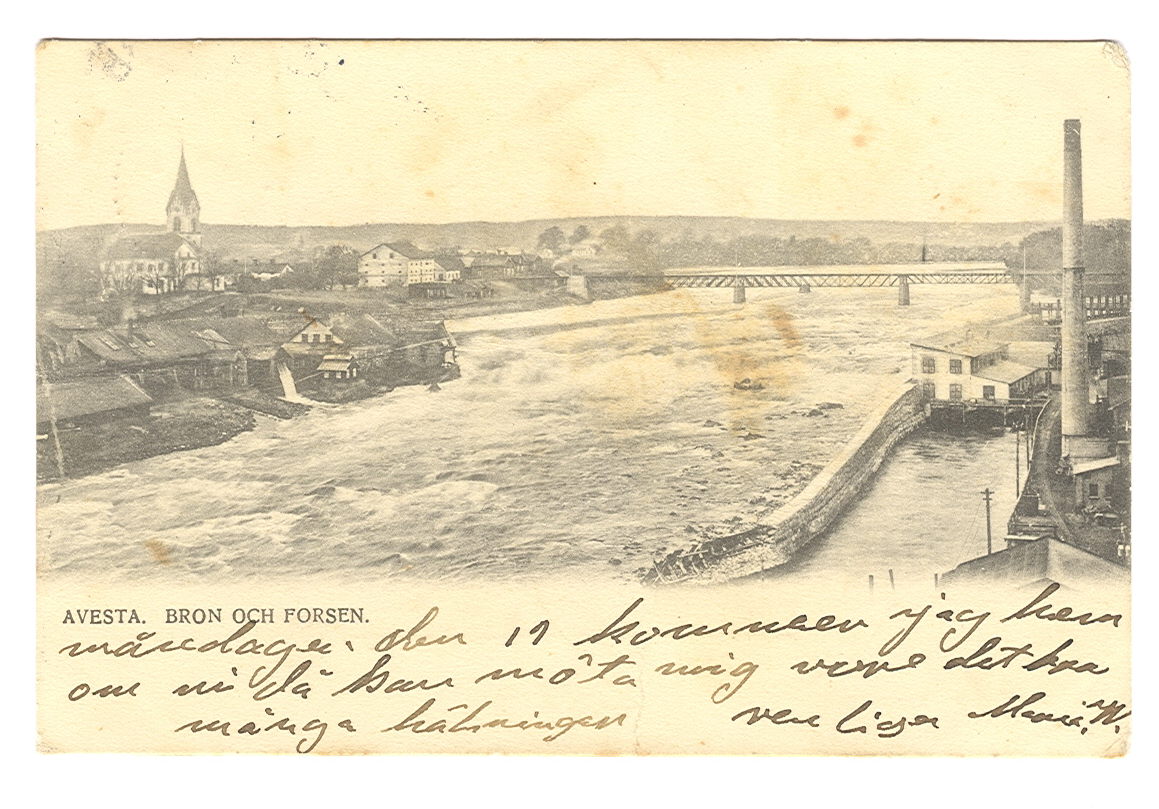 AVESTA. BRON OCH FORSEN.
måndagen den 19 kommer jag hem
om ni då kan möta mig vore det bra
många hälningen vän Marie W.